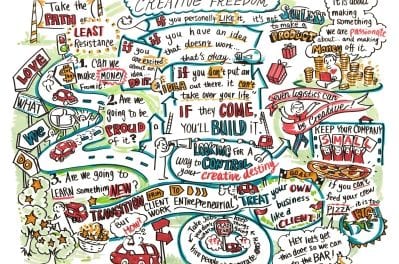 CREATIVE FREEDOM
Take the
PATH
of
LEAST
Resistance
if you personally LIKE it,
it's not
to make a
PRODUCT
It is about
making
something
we are passionate
about... and making
Money off it.
if YOU have an IDEA
that doesn't work...
that's okay.
if you are
excited
about
an IDEA
DO it.
if you don't put an
IDEA out there it can't
take over your life
IF they COME,
YOU'LL BUILD it.
LOOKING FOR A
way to CONTROL
your creative destiny
LOVE
WHAT
WE
DO
1. Can we
make
MONEY
from it?
2. Are we
going to be
PROUD
OF it?
3. Are we going to
LEARN something NEW?
Even logistics can
be Creative
KEEP YOUR COMPANY
SMALL
if you can't
feed your crew
PIZZA
it is too
BIG
TRANSITION FROM
CLIENT
WORK
TO
Entrepreneurial
BUT
HOW?
TREAT your OWN
business
like a
CLIENT.
HEY let's get
this door so we can
go to the BAR!